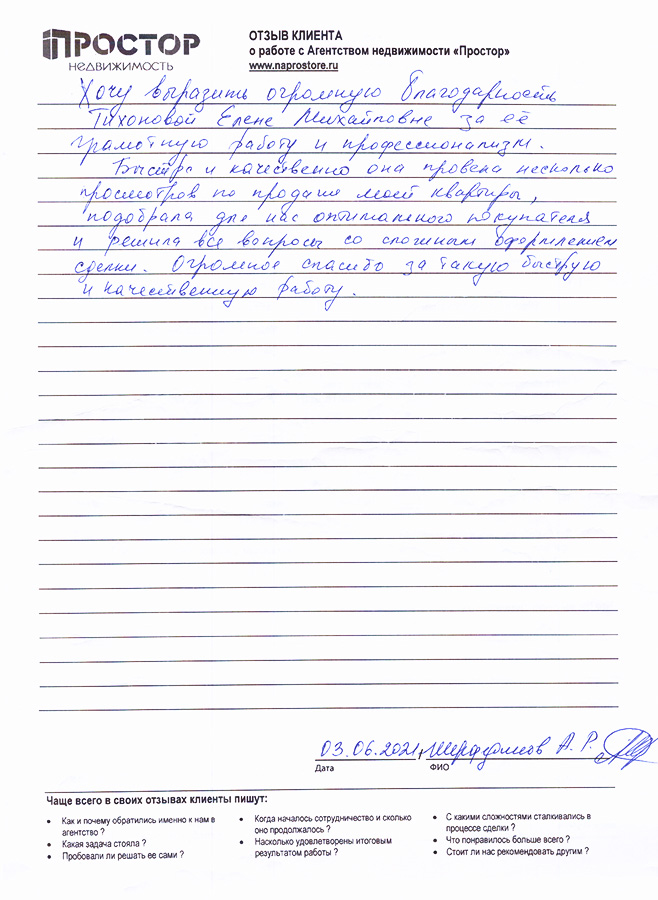 ПРОСТОР
НЕДВИЖИМОСТЬ
ОТЗЫВ КЛИЕНТА
о работе с Агентством недвижимости «Простор»
www.naprostore.ru
Хочу выразить огромную благодарность
Тихоновой Елене Михайловне за её
грамотную работу и профессионализм.
Быстро и качественно она провела несколько
просмотров по продаже моей квартиры,
подобрала для нас оптимального покупателя
и решила все вопросы со сложным оформлением
сделки. Огромное спасибо за такую быструю
и качественную работу.
03.06.2021, А. Р.
Дата ФИО
Чаще всего в своих отзывах клиенты пишут:
• Как и почему обратились именно к нам в
агентство ?
• Какая задача стояла ?
• Пробовали ли решать ее сами ?
• Когда началось сотрудничество и сколько
оно продолжалось ?
• Насколько удовлетворены итоговым
результатом работы ?
• С какими сложностями сталкивались в
процессе сделки ?
• Что понравилось больше всего ?
• Стоит ли нас рекомендовать другим ?